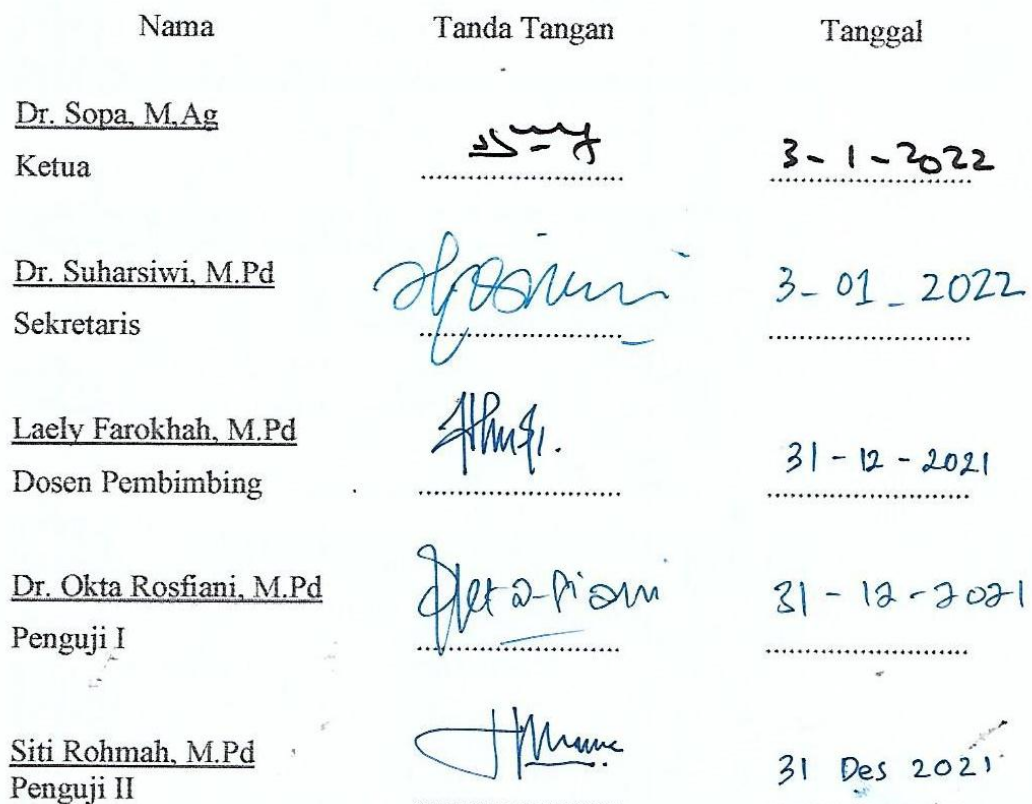 Nama Tanda Tangan Tanggal
Dr. Sopa, M,Ag
Ketua 3-1-2022
Dr. Suharsiwi, M.Pd
Sekretaris 3-01-2022
Laely Farokhah, M.Pd
Dosen Pembimbing 31-12-2021
Dr. Okta Rosfiani, M.Pd
Penguji I 31-12-2021
Siti Rohmah, M.Pd
Penguji II 31 Des 2021